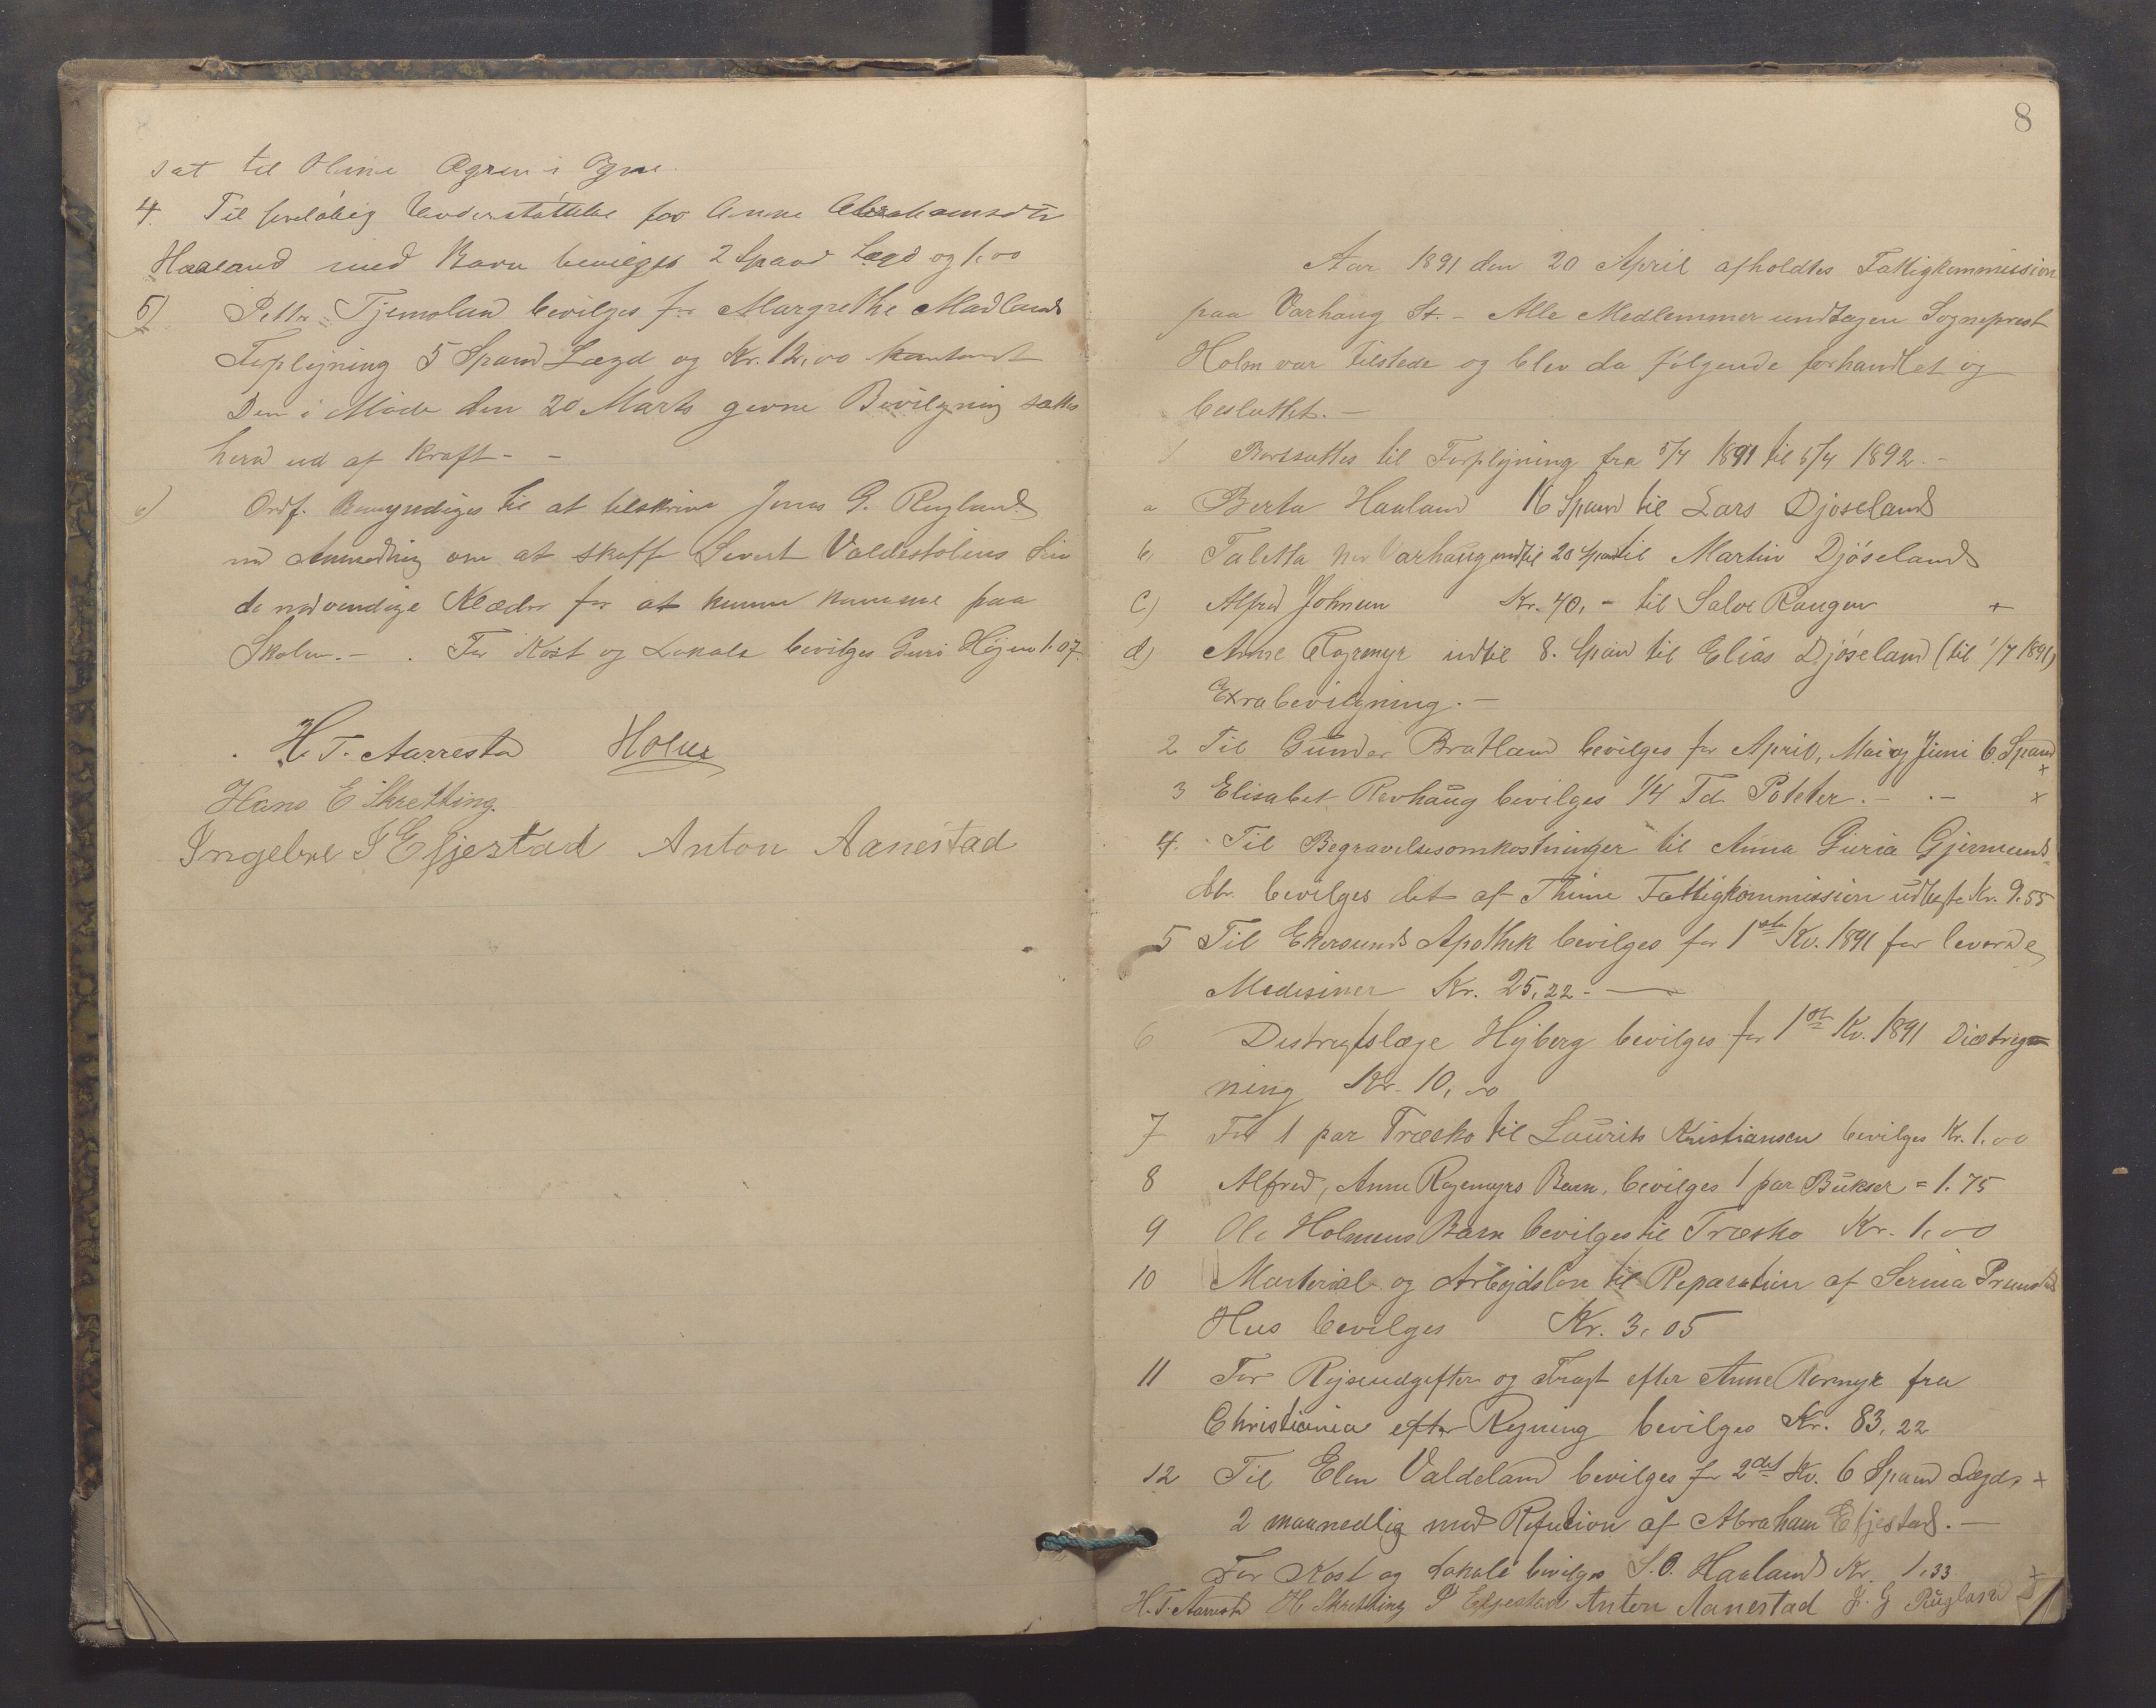 sat til Oline Ogren i Ogne.
4. Til foreløbig Understøttelse for Anne Abrahamsdtr
Haaland med Barn bevilges 2 Spand Lægd og 1.00
5) Petter Tjemsland bevilges for Margrethe Madlands
Forplejning 5 Spand Lægd og Kr. 12,00 kontant
Den i Møde den 20 Marts gevne Bevilgning sættes
herved ud af Kraft. -
6) Ordf. Bemyndiges til at tilskrive Jonas G. Rugland
med Anmodning om at skaff Severt Valdestølens
de nødvendige Klæder for at kunne komme paa
Skolen. - . For Kost og Lokale bevilges Guri Højen 1.07.
H. T. Aarrestad Holm
Hans E Skretting.
Ingebret T Efjestad Anton Aanestad
8
Aar 1891 den 20 April afholdtes Fattigkommission
paa Varhaug St. - Alle Medlemmer undtagen Sogneprest
Holm var tilstede og blev da følgende forhandlet og
besluttet. -
1 Bortsattes til Forplejning fra 5/4 1891 til 5/4 1892. -
a Berta Haaland 16 Spand til Lars Djøseland
b, Taletta Varhaug indtil 20 Spand til Martin Djøseland
C) Alfred Johnsen Kr. 40, - til Salve Raugen +
d) Anne indtil 8. Spand til Elias Djøseland (til 1/7 1891)
Exrabevilgning. -
2 Til Gunder Bratland bevilges for April, Mai og Juni 6. Spand +
3 Elisabet Revhaug bevilges 1/4 Td. Poteter. - . - +
4. Til Begravelsesomkostninger til Anna Guria Gjermunds-
dtr. bevilges det af Thime Fattigkommission udlagte Kr. 9.55
5 Til Ekersunds Apothek bevilges for 1ste Kv. 1891 for leverede
Medisiner Kr. 25,22. -
6 Destrigtslæge Hyberg bevilges for 1ste Kv. 1891
ning Kr. 10,00
7 For 1 par Træsko til Laurits Kristiansen bevilges Kr. 1.00
8 Alfred, Anne Rogemyrs Barn, bevilges 1 par Bukser = 1.75
9 Ole Holmens Barn bevilges til Træsko Kr. 1,00
10 Materiel og Arbejdsløn til Reparation af Serina
Hus bevilges Kr. 3,05
11 For Rejseudgifter og Fragt efter Anne fra
Christiania efter Regning bevilges Kr. 83,22
12 Til Elen Valdeland bevilges for 2det Kv. 6 Spand Lægd, +
2 maanedlig med Refution af Abraham Efjestad. -
For Kost og Lokale bevilges S. O. Haaland Kr. 1,33 +
H. T. Aarrestad H Skretting I Efjestad Anton Aanestad J. G Rugland